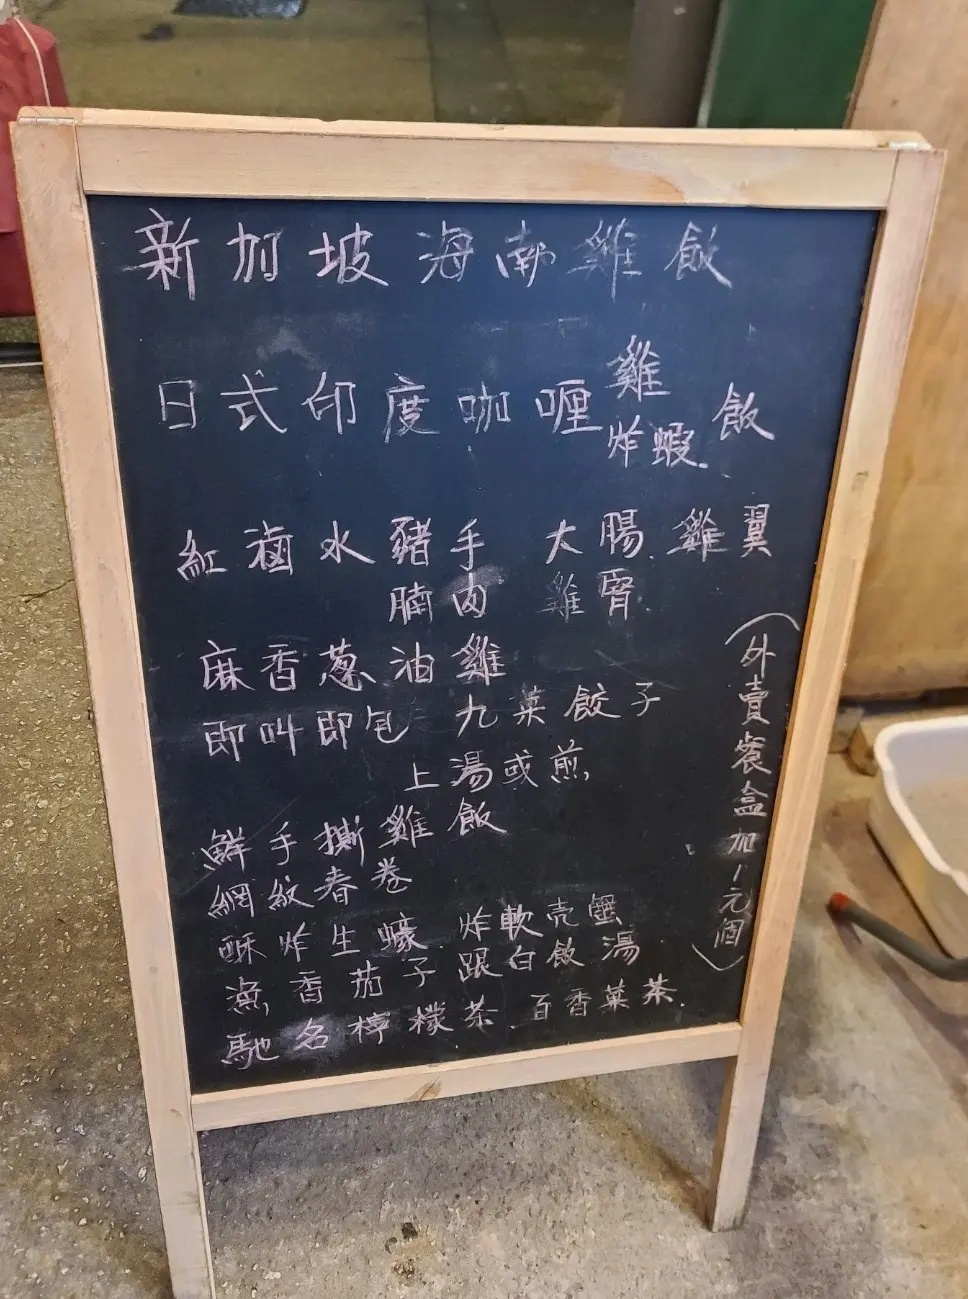 新加坡海南雞飯
日式印度咖喱雞炸蝦飯
紅滷水豬手 大腸 雞翼
腩肉 雞腎
麻香蔥油雞
即叫即包 九菜餃子
上湯或煎
鮮手撕雞飯
網紋春卷
酥炸生蠔 炸軟壳蟹
漁香茄子跟白飯湯
馳名檸檬茶 百香菓茶
(外賣餐盒加1元個)